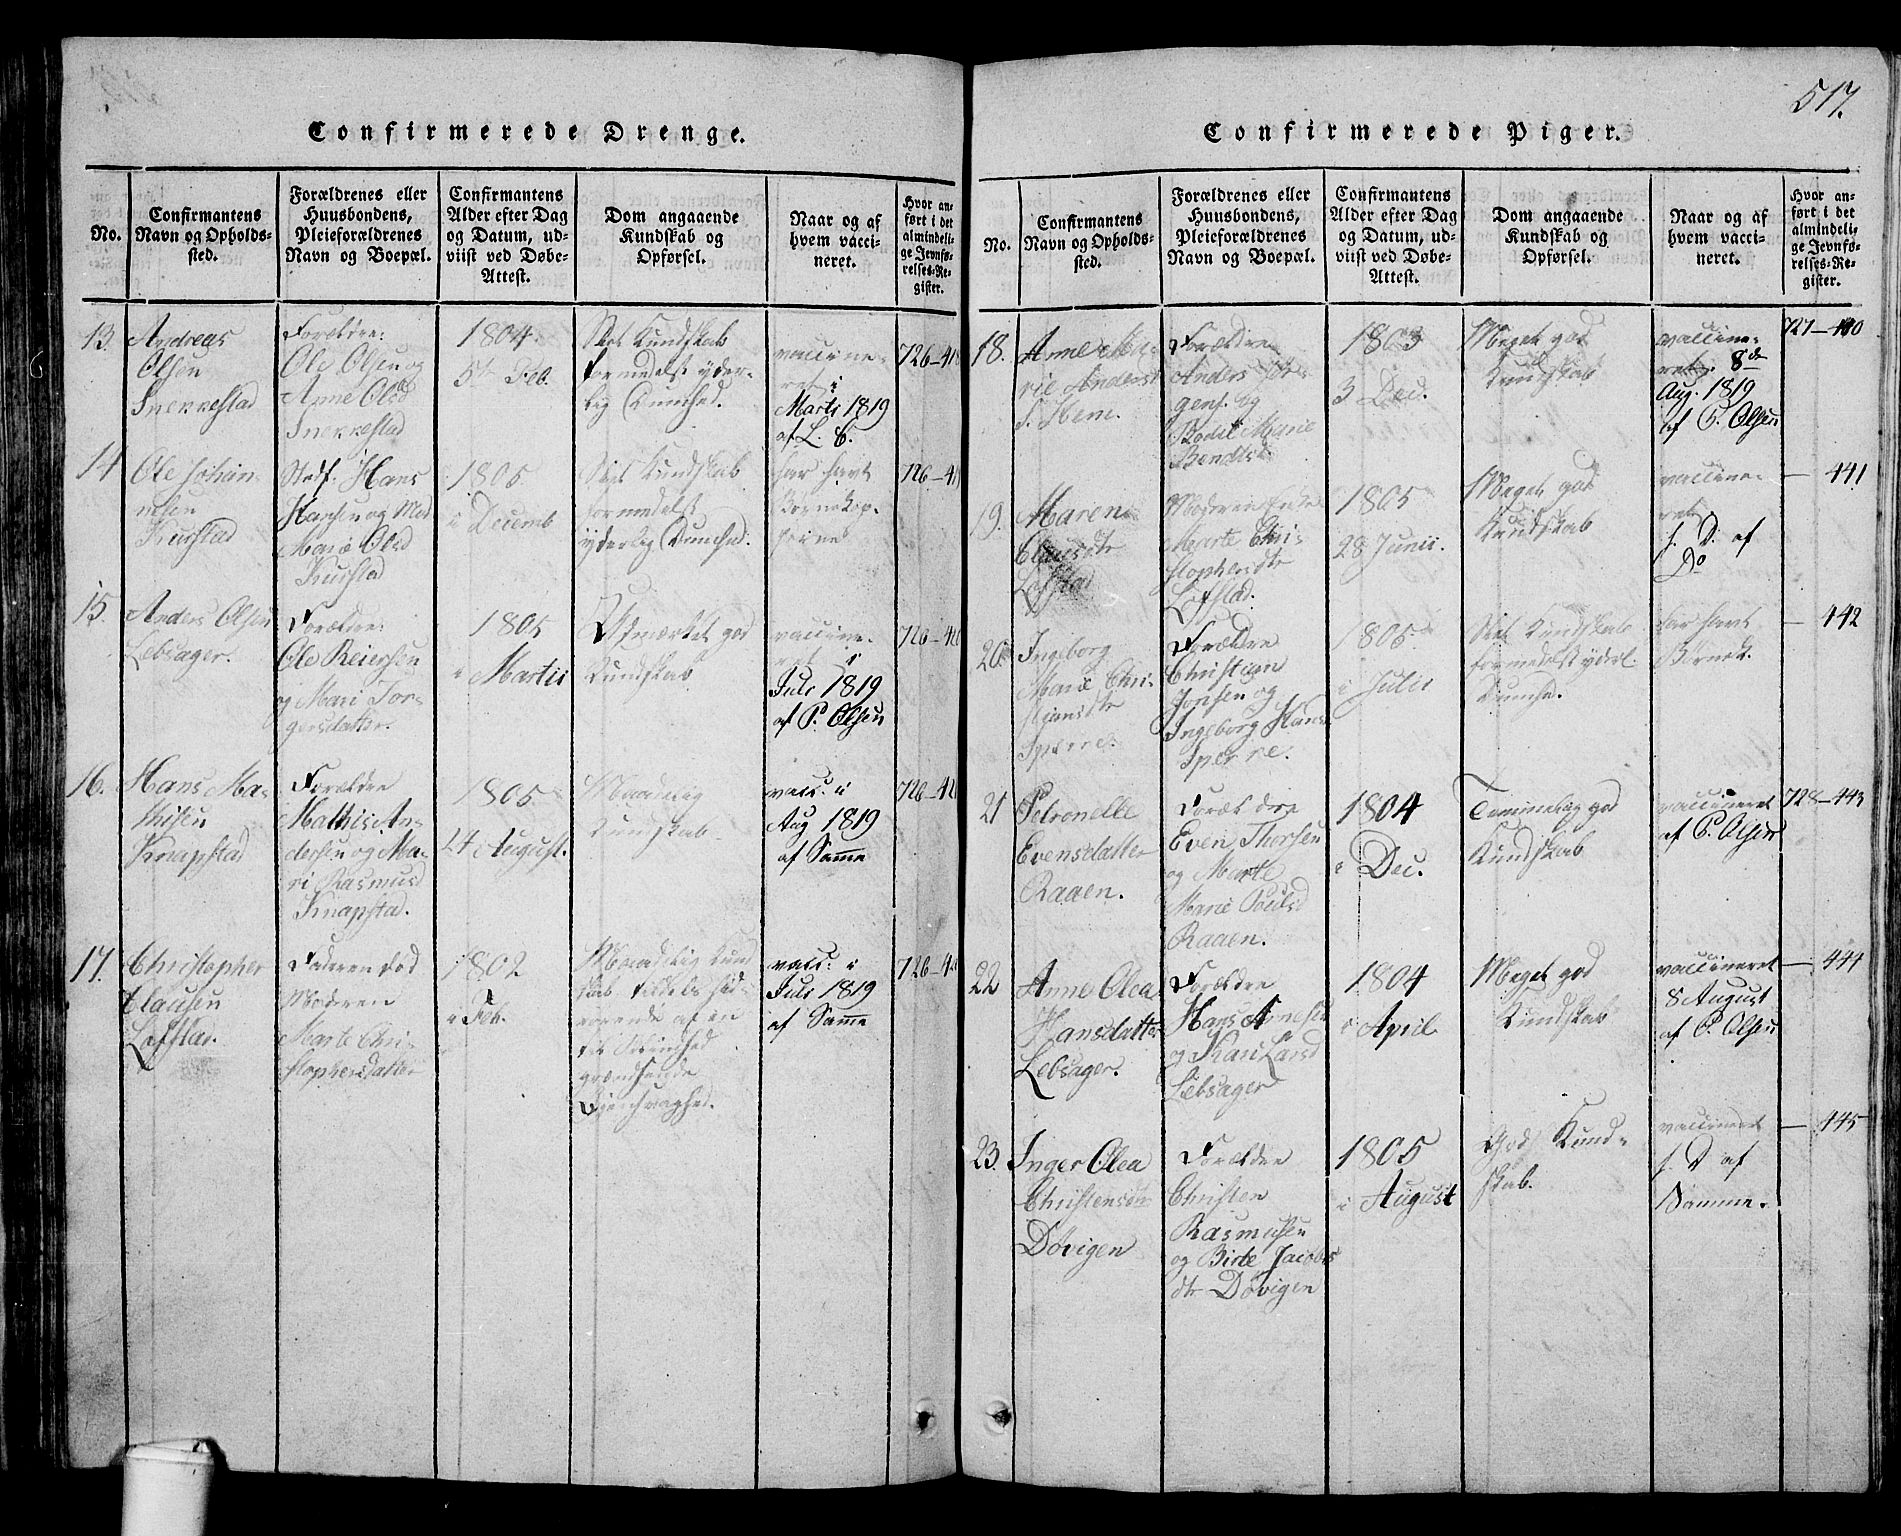 517.
Confirmerede Drenge.
No.
Confirmantens
Navn og Opholds-
sted.
Forældrenes eller
Huusbondens,
Pleieforældrenes
Navn og Boepæl.
Confirmantens
Alder efter Dag
og Datum, ud-
viist ved Døbe-
Attest.
Dom angaaende
Kundskab og
Opførsel.
Naar og af
hvem vacci-
neret.
Hvor an-
ført i det
almindeli-
ge Jevnfø-
relses-Re-
gister.
13.
Andreas
Olsen
Snekkestad
Forældre:
Ole Olsen og
Anne Olsd
Snekkestad
1804
5te Feb.
Slet Kundskab
formedelst yder-
lig Dumhed.
vaccine-
ret i
Marts 1819
af L. C.
726-418
14
Ole Johan-
nesen
Kurstad
Stedf: Hans
Hansen og Mod
Marie Olsd
Kurstad
1805
i Decemb
Slet Kundskab
formedelst
yderlig Dumhed.
har havt
Børnekop-
perne
726-419
15.
Anders Olsen
Lebsager.
Forældre:
Ole Reiersen
og Mari Tor-
gersdatter.
1805
i Martii
Udmærket god
Kundskab
vaccine-
ret i
Juli 1819
af P. Olsen
726-420
16.
Hans Ma-
thisen
Knapstad
Forældre
Mathis An-
dersen og Ma-
ri Rasmusd
Knapstad.
1805
24 August.
Maadelig
Kundskab
vacc: i
Aug 1819
af Samme
726-421
17.
Christopher
Clausen
Løfstad.
Faderen død
Moderen
Marte Chri-
stophersdatter
1802
i Feb.
Maadelig Kund
skab
af en
til
grændsende
vacc: i
Juli 1819
af Samme
Confirmerede Piger.
No.
Confirmantens
Navn og Opholds-
sted.
Forældrenes eller
Huusbondens,
Pleieforældrenes
Navn og Boepæl.
Confirmantens
Alder efter Dag
og Datum, ud-
viist ved Døbe-
Attest.
Dom angaaende
Kundskab og
Opførsel.
Naar og af
hvem vacci-
neret.
Hvor an-
ført i det
almindeli-
ge Jevnfø-
relses-Re-
gister.
18.
Anne Ma-
rie Andersd
Forældre
Anders
og
Bodil Marie
Bendtsd
1803
3 Dec.
Meget god
Kundskab
vaccine-
ret 8de
Aug. 1819
af P. Olsen
727-440
19.
Maren
Clausdtr
Løfstad
Moderen Enke
Marte Chri-
stophersdtr
Løfstad.
1805
28 Junii.
Meget god
Kundskab
vaccine-
ret
s. D. af
Do
— 441
20.
Ingeborg
Marie Chri-
stiansdtr
Sperre.
Forældre
Christian
Jonsen og
Ingeborg Hans
Sperre.
1805
i Julii
Slet Kundskab
formedelst yderl.
Dumhe.
har havt
Børnek.
— 442
21
Petronelle
Evensdatter
Raaen.
Forældre
Even Thorsen
og Marte
Marie Poulsd
Raaen.
1804
i Dec.
Temmelig god
Kundskab
vaccineret
af P. Olsen
728-443
22
Anne Olea
Hansdatter
Lebsager.
Forældre
Hans Arnesen
og Kari Larsd
Lebsager
1804
i April
Meget god
Kundskab
vaccineret
8 August
af P. Olsen
— 444
23.
Inger Olea
Christensdtr
Døvigen
Forældre
Christen
Rasmusen
og Birte Jacobs
dtr Døvigen
1805
i August
God Kund-
skab.
vaccineret
s. D af
Samme.
— 445